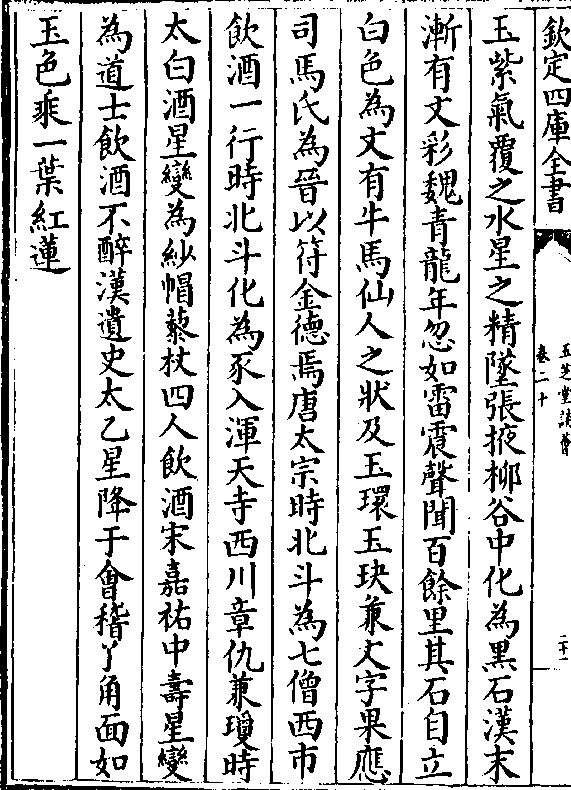 欽定四庫全書
玉芝堂談薈
卷二十
二十一
玉紫氣覆之水星之精墜張掖柳谷中化為黑石漢末
漸有文彩魏青龍年忽如雷震聲聞百餘里其石自立
白色為文有牛馬仙人之狀及玉環玉玦兼文字果應
司馬氏為晉以符金德焉唐太宗時北斗為七僧西市
飲酒一行時北斗化為豕入渾天寺西川章仇兼瓊時
太白酒星變為紗帽藜杖四人飲酒宋嘉祐中壽星變
為道士飲酒不醉漢遺史太乙星降于會稽丫角面如
玉色乘一葉紅蓮